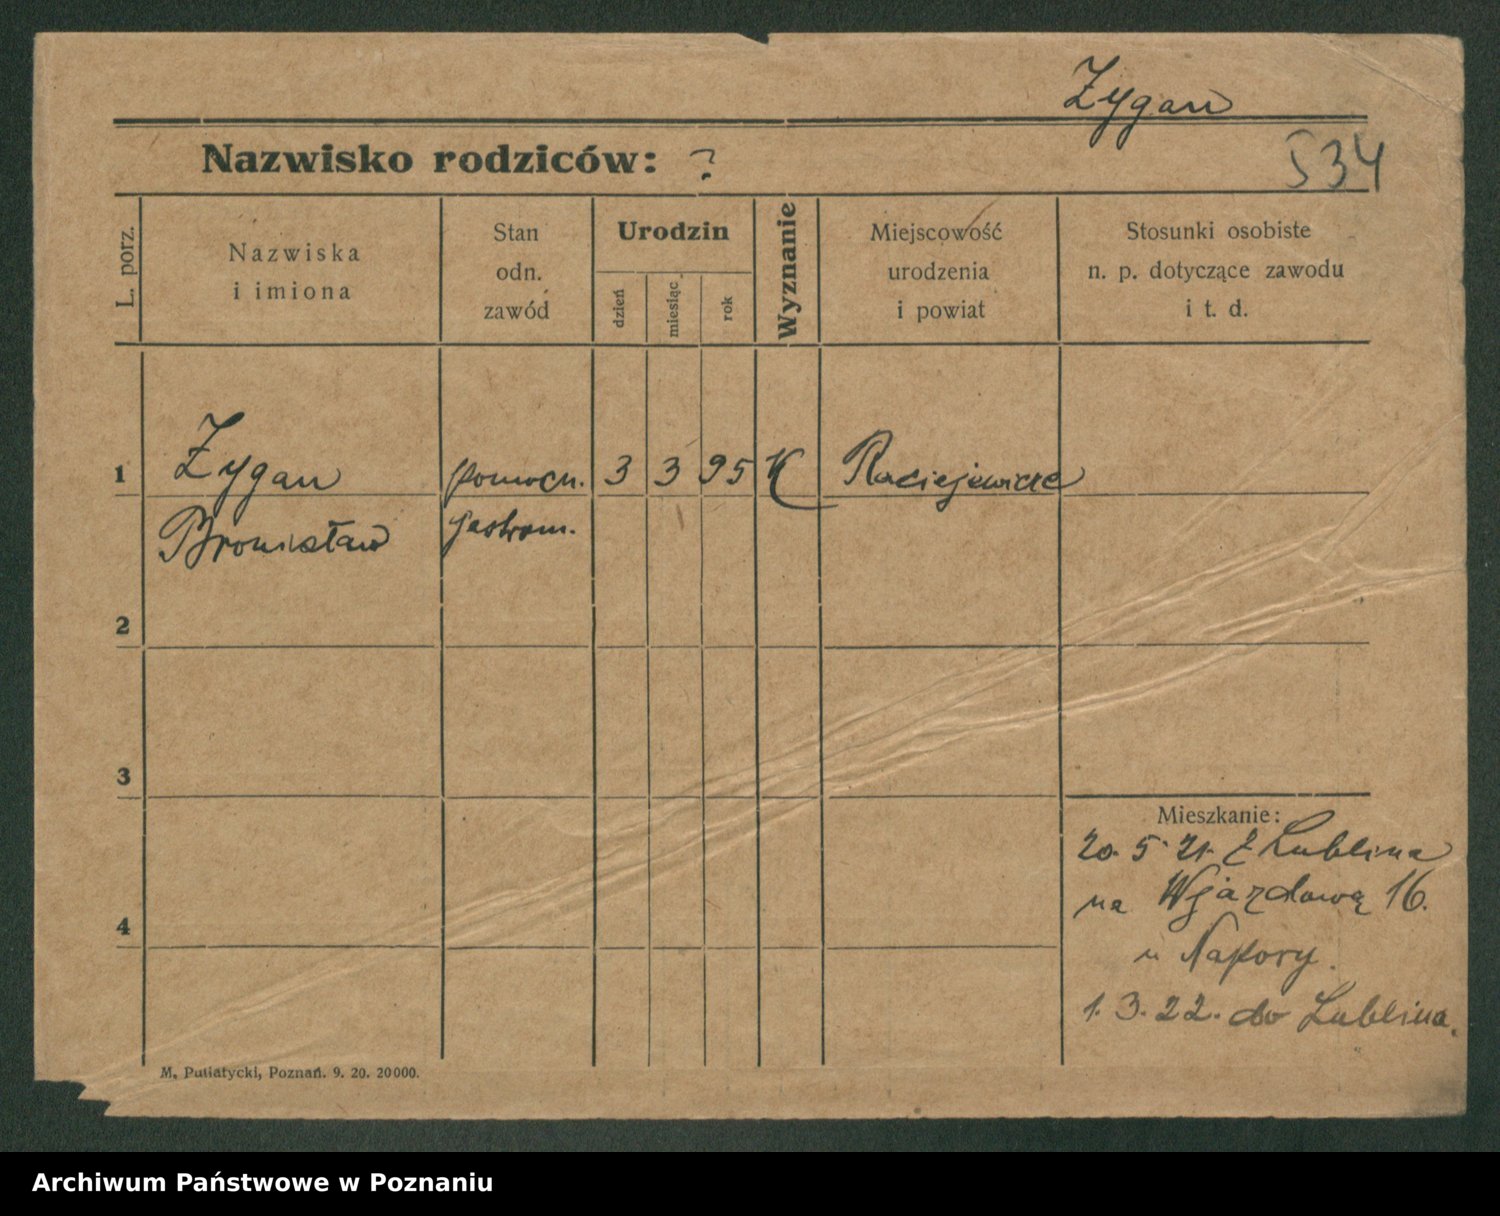 Zygan
Nazwisko rodziców: ?
534
L. porz.
Nazwiska
i imiona
Stan
odn.
zawód
Urodzin
dzień
miesiąc
rok
Wyznanie
Miejscowość
urodzenia
i powiat
Stosunki osobiste
n. p. dotyczące zawodu
i t. d.
1 Zygan pomocn. 3 3 95 K Raciejewicze
Bronisław gastron.
2
3
4
Mieszkanie:
20. 5. 21. z Lublina
na Wjazdową 16.
u Napory.
1. 3. 22. do Lublina.
M. Putiatycki, Poznań. 9. 20. 20000.
Archiwum Państwowe w Poznaniu